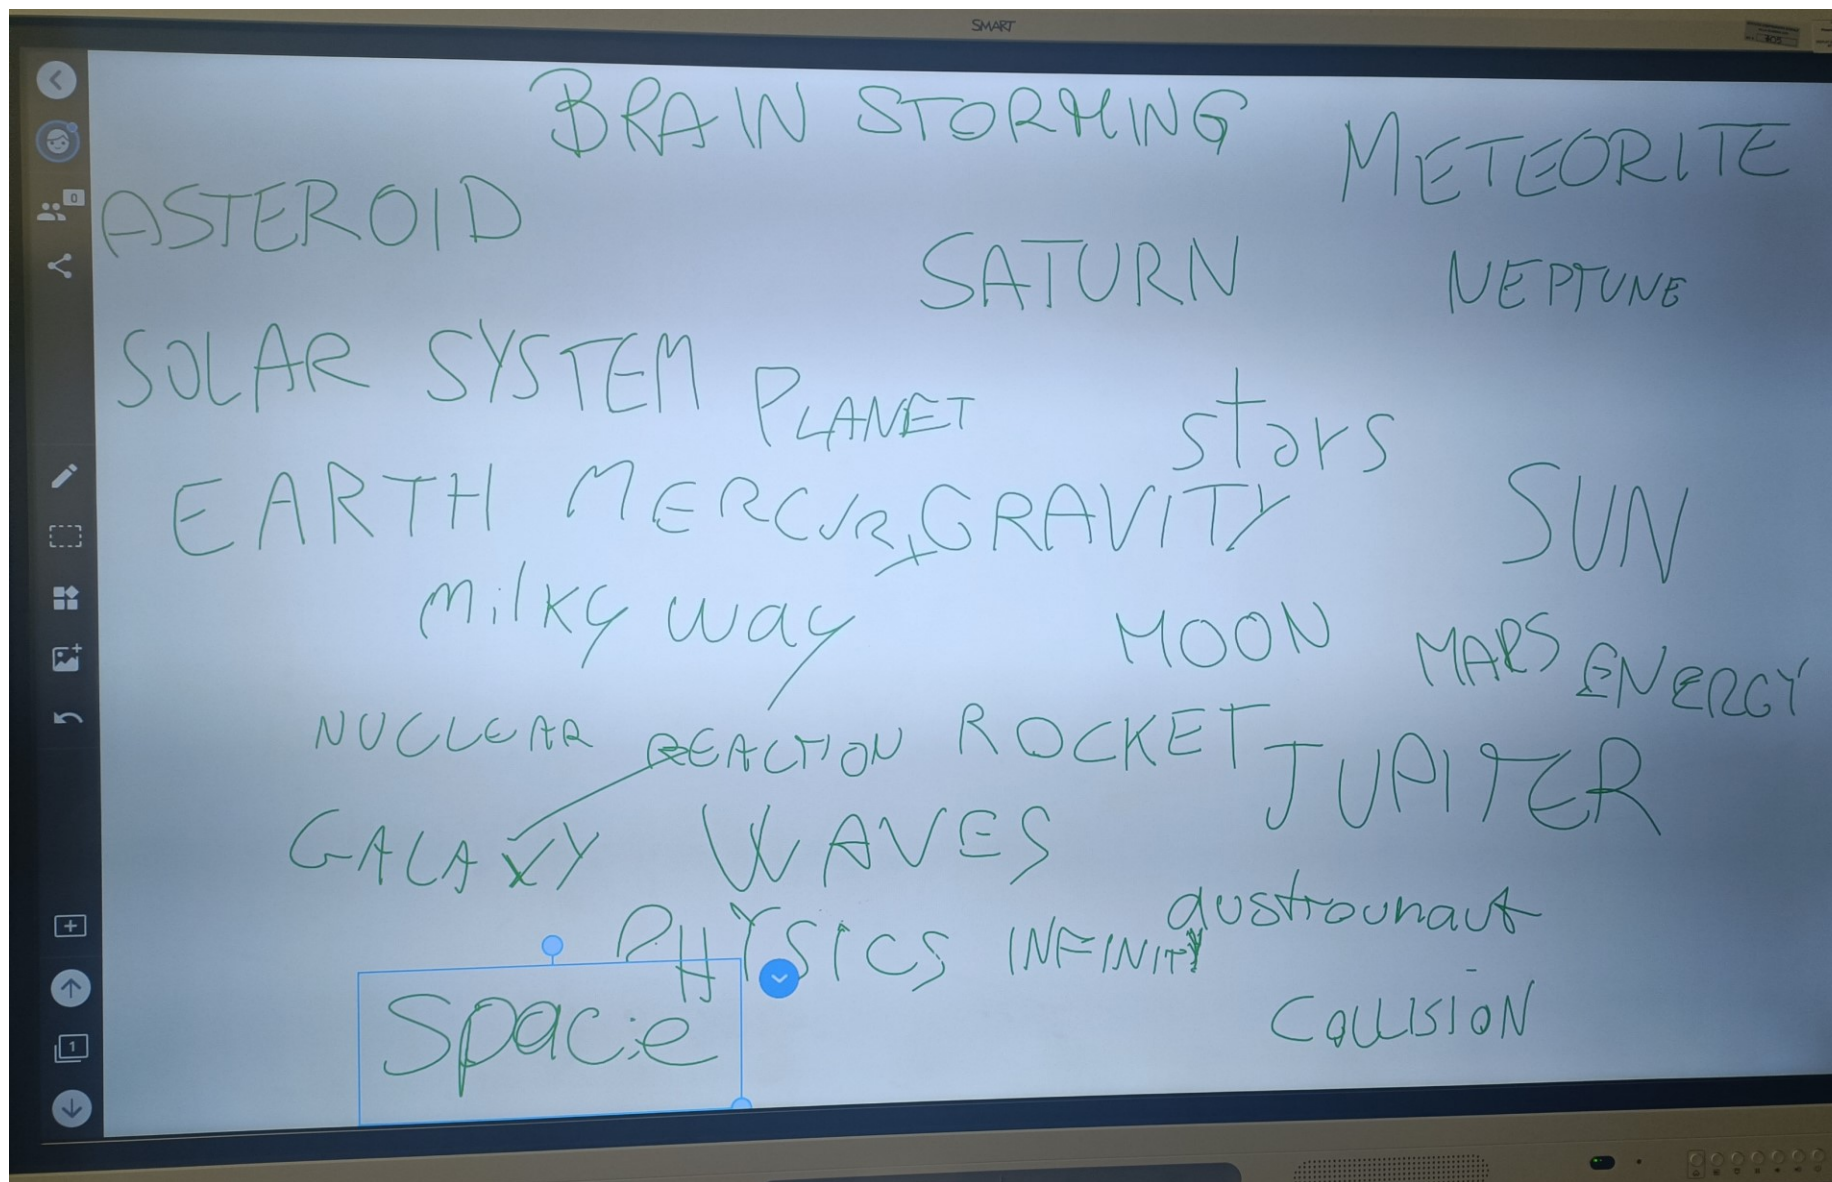 SMART
BRAIN STORMING
METEORITE
ASTEROID
SATURN
NEPTUNE
SOLAR SYSTEM
PLANET
stars
EARTH MERCURY GRAVITY
SUN
milky way
MOON
MARS ENERGY
NUCLEAR REACTION ROCKET
JUPITER
GALAXY WAVES
austrounaut
PHYSICS INFINITY
Space
COLLISION
0
1